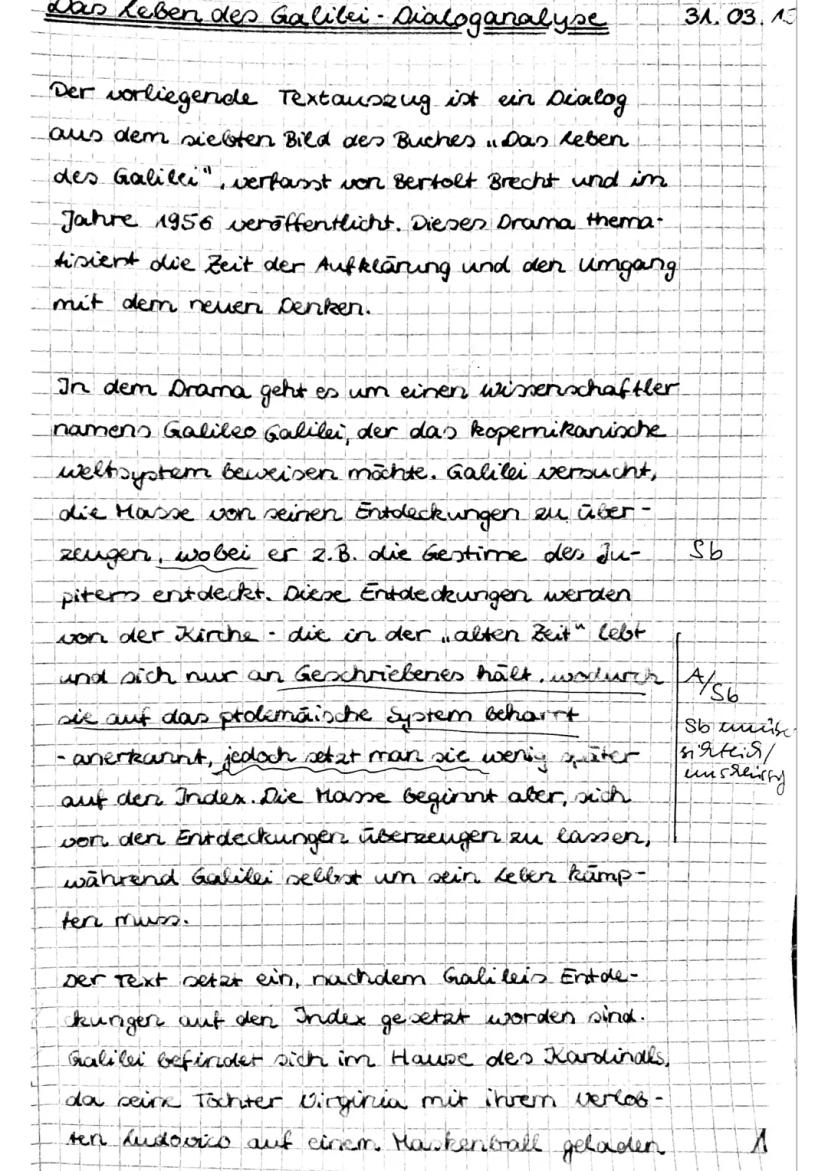 Das Leben des Galilei - Dialoganalyse 31. 03. 15
Der vorliegende Textauszug ist ein Dialog
aus dem siebten Bild des Buches „Das Leben
des Galilei", verfasst von Bertolt Brecht und im
Jahre 1956 veröffentlicht. Dieses Drama thema-
tisiert die Zeit der Aufklärung und den Umgang
mit dem neuen Denken.
In dem Drama geht es um einen Wissenschaftler
namens Galileo Galilei, der das kopernikanische
Weltsystem beweisen möchte. Galilei versucht,
die Masse von seinen Entdeckungen zu über-
zeugen, wobei er z.B. die Gestirne des Ju- Sb
piters entdeckt. Diese Entdeckungen werden
von der Kirche - die in der „alten Zeit" lebt
und sich nur an Geschriebenes hält, wodurch A/Sb
sie auf das ptolemäische System beharrt Sb
- anerkannt, jedoch setzt man sie wenig später
auf den Index. Die Masse beginnt aber, sich
von den Entdeckungen überzeugen zu lassen,
während Galilei selbst um sein Leben kämp-
fen muss.
Der Text setzt ein, nachdem Galileis Entde-
ckungen auf den Index gesetzt worden sind.
Galilei befindet sich im Hause des Kardinals,
da seine Tochter Virginia mit ihrem Verlob-
ten Ludovico auf einem Maskenball geladen 1